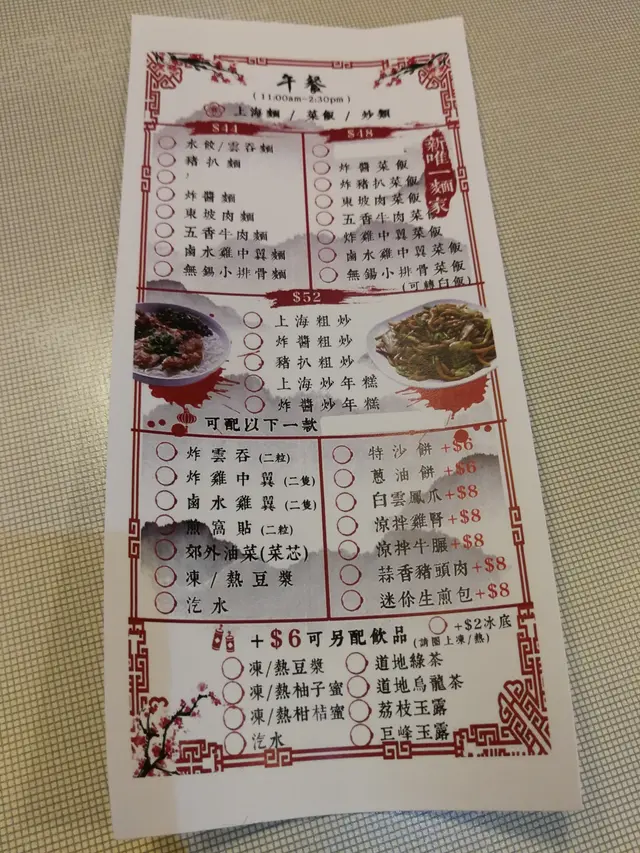 午餐
(11:00am~2:30pm)
上海麵 / 菜飯 / 炒麵
$44
水餃/雲吞麵
豬扒麵
炸醬麵
東坡肉麵
五香牛肉麵
鹵水雞中翼麵
無錫小排骨麵
$48
新唯一麵家
炸醬菜飯
炸豬扒菜飯
東坡肉菜飯
五香牛肉菜飯
炸雞中翼菜飯
鹵水雞中翼菜飯
無錫小排骨菜飯
(可轉白飯)
$52
上海粗炒
炸醬粗炒
豬扒粗炒
上海炒年糕
炸醬炒年糕
可配以下一款
炸雲吞 (二粒)
炸雞中翼 (二隻)
鹵水雞翼 (二隻)
煎窩貼 (二粒)
郊外油菜(菜芯)
凍/熱豆漿
汔水
特沙餅 +$6
蔥油餅 +$6
白雲鳳爪 +$8
涼拌雞腎 +$8
涼拌牛𦟌 +$8
蒜香豬頭肉 +$8
迷你生煎包 +$8
+$6可另配飲品 (請圈上凍/熱)
+$2冰底
凍/熱豆漿
凍/熱柚子蜜
凍/熱柑桔蜜
汔水
道地綠茶
道地烏龍茶
荔枝玉露
巨峰玉露